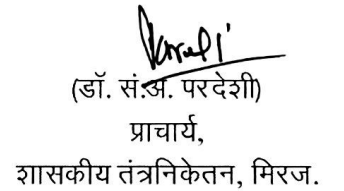 (डॉ. सं.अ. परदेशी)
प्राचार्य,
शासकीय तंत्रनिकेतन, मिरज.